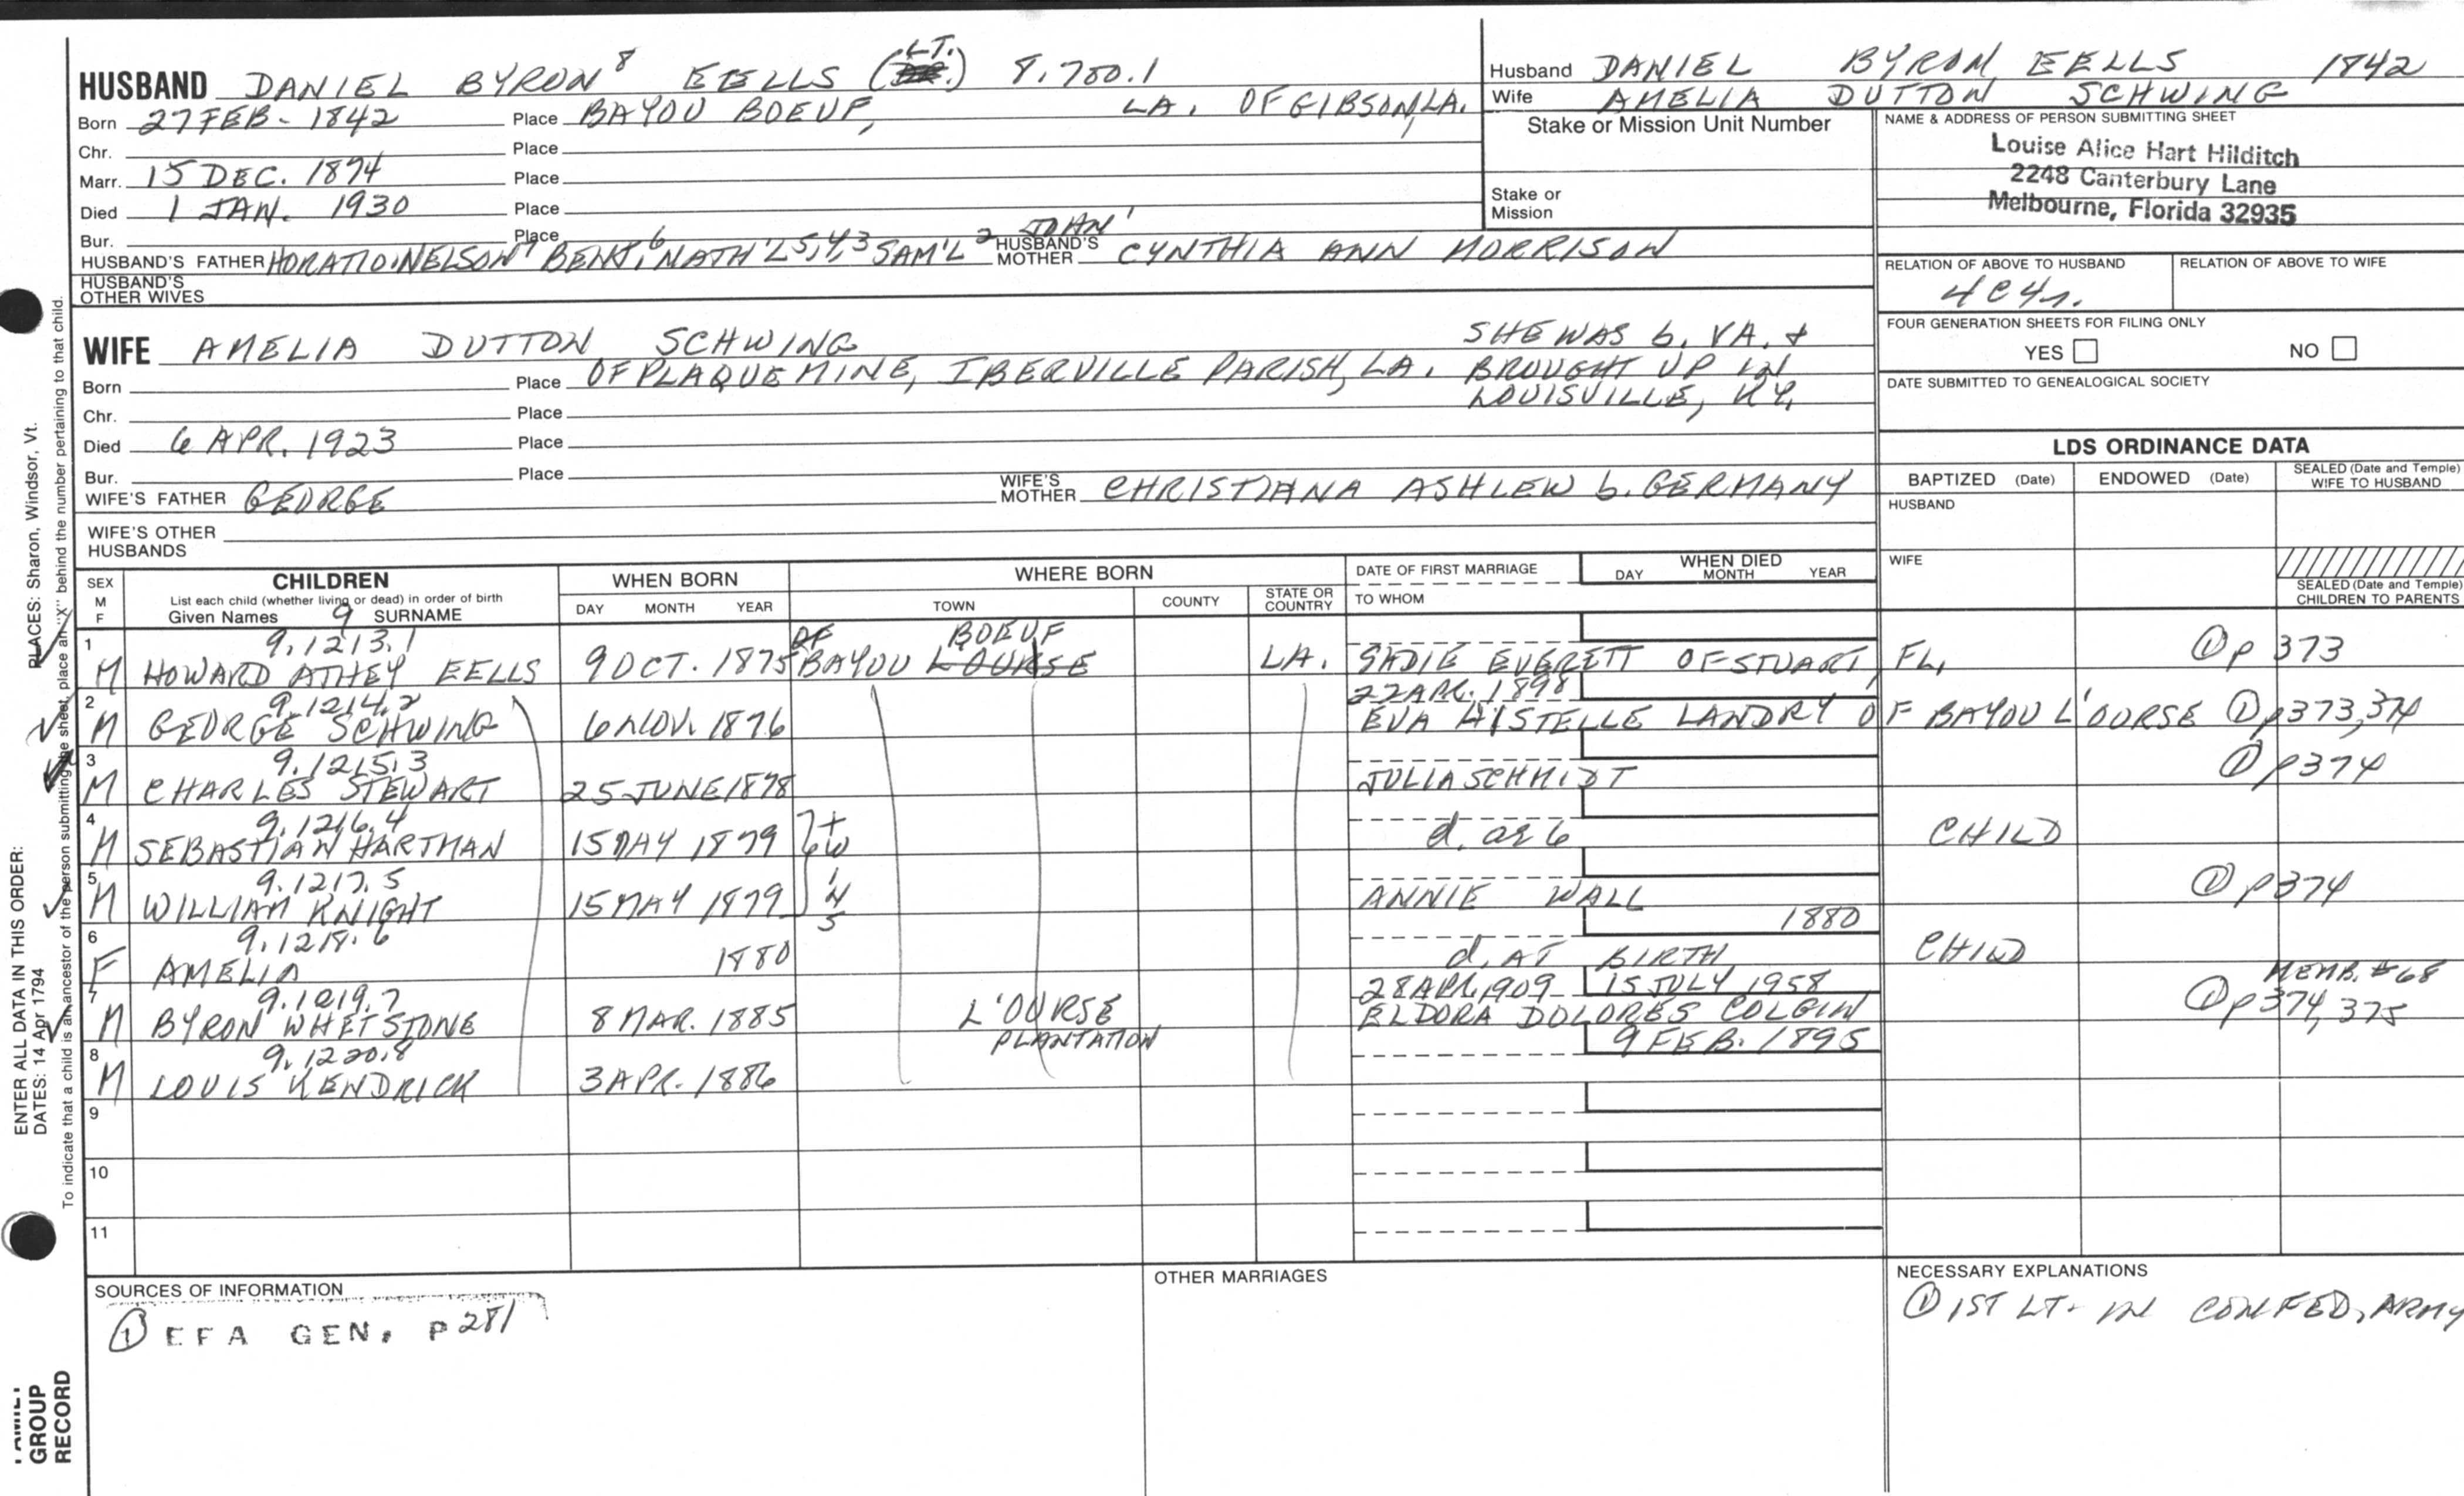 HUSBAND DANIEL BYRON 8 EELLS (LT.) 8.780.1
Born 27 FEB. 1842 Place BAYOU BOEUF, LA. OF GIBSON, LA.
Chr. Place
Marr. 15 DEC. 1874 Place
Died 1 JAN. 1930 Place
Bur. Place
HUSBAND'S FATHER HORATIO NELSON 7 BENJ. 6 NATH'L 5,4,3 SAM'L 2 JOHN 1 HUSBAND'S MOTHER CYNTHIA ANN MORRISON
HUSBAND'S OTHER WIVES
Husband DANIEL BYRON EELLS 1842
Wife AMELIA DUTTON SCHWING
Stake or Mission Unit Number
Stake or Mission
NAME & ADDRESS OF PERSON SUBMITTING SHEET
Louise Alice Hart Hilditch
2248 Canterbury Lane
Melbourne, Florida 32935
RELATION OF ABOVE TO HUSBAND RELATION OF ABOVE TO WIFE
4C4r.
FOUR GENERATION SHEETS FOR FILING ONLY
YES NO
DATE SUBMITTED TO GENEALOGICAL SOCIETY
WIFE AMELIA DUTTON SCHWING SHE WAS b. VA. &
Born Place OF PLAQUEMINE, IBERVILLE PARISH, LA. BROUGHT UP IN
Chr. Place LOUISVILLE, KY.
Died 6 APR. 1923 Place
Bur. Place
WIFE'S FATHER GEORGE WIFE'S MOTHER CHRISTIANA ASHLEW b. GERMANY
WIFE'S OTHER HUSBANDS
LDS ORDINANCE DATA
BAPTIZED (Date) ENDOWED (Date) SEALED (Date and Temple) WIFE TO HUSBAND
HUSBAND
WIFE
SEALED (Date and Temple) CHILDREN TO PARENTS
SEX M F CHILDREN WHEN BORN WHERE BORN DATE OF FIRST MARRIAGE WHEN DIED
List each child (whether living or dead) in order of birth DAY MONTH YEAR TOWN COUNTY STATE OR COUNTRY TO WHOM DAY MONTH YEAR
Given Names 9 SURNAME
1 9.1213.1 OF BOEUF
M HOWARD ATHEY EELLS 9 OCT. 1875 BAYOU L'OURSE LA. SADIE EVERETT OF STUART, FL. ① p 373
2 9.1214.2 22 APR. 1898
M GEORGE SCHWING 6 NOV. 1876 EVA LANDRY OF BAYOU L'OURSE ① p373,374
3 9.1215.3
M CHARLES STEWART 25 JUNE 1878 JULIA SCHMIDT ① p374
4 9.1216.4
M SEBASTIAN HARTMAN 15 MAY 1879 TWINS d. at 6 CHILD
5 9.1217.5
M WILLIAM KNIGHT 15 MAY 1879 ANNIE WALL ① p374
6 9.1218.6 1880
F AMELIA 1880 d. AT BIRTH CHILD
7 9.1219.7 28 APR. 1909 15 JULY 1958 MEMB. #68
M BYRON WHETSTONE 8 MAR. 1885 L'OURSE PLANTATION ELDORA DOLORES COLGIN ① p374,375
8 9.1220.8 9 FEB. 1895
M LOUIS KENDRICK 3 APR. 1886
9
10
11
SOURCES OF INFORMATION
① EFA GEN. P 281
OTHER MARRIAGES
NECESSARY EXPLANATIONS
① 1ST LT. IN CONFED. ARMY
ENTER ALL DATA IN THIS ORDER:
DATES: 14 Apr 1794 PLACES: Sharon, Windsor, Vt.
To indicate that a child is an ancestor of the person submitting the sheet, place an "X" behind the number pertaining to that child.
FAMILY
GROUP
RECORD